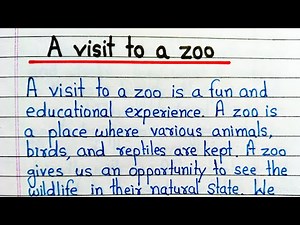 A visit to a zoo
A visit to a zoo is a fun and
educational experience. A zoo is
a place where various animals,
birds, and reptiles are kept. A zoo
gives us an opportunity to see the
wildlife in their natural state. We